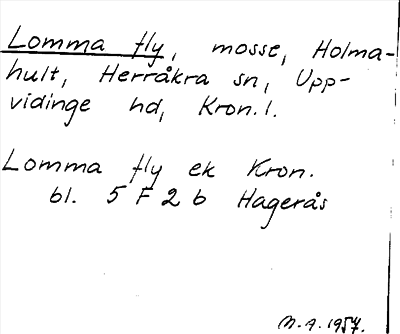 Lomma fly, mosse, Holma-
hult, Herråkra sn, Upp-
vidinge hd, Kron.l.
Lomma fly ek Kron.
bl. 5 F 2 b Hagerås
M.A. 1957.